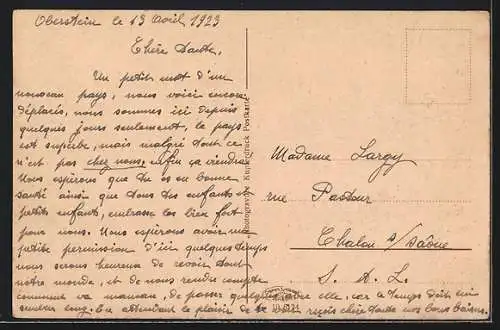 Oberstein le 13 Avril, 1923
Chère Tante,
Un petit mot d'un
nouveau pays, nous voici encore
déplacés, nous sommes ici depuis
quelques jours seulement, le pays
est superbe, mais malgré tout ce
n'est pas chez nous, enfin ça viendra
Nous espérons que tu es en bonne
santé ainsi que tous tes enfants et
petits enfants, embrasse les bien fort
pour nous. Nous espérons avoir une
petite permission d'ici quelques temps
nous serons heureux de revoir tout
notre monde, et de nous rendre compte
comment va maman, de passer quelques avec elle, car le temps doit lui
sembler long. En attendant le plaisir de te reçois chère tante nos bons baisers.
Photogravure Kupferdruck Postkarte
Madame Largy
rue Pasteur
Chalon s/Saône
S. & L.